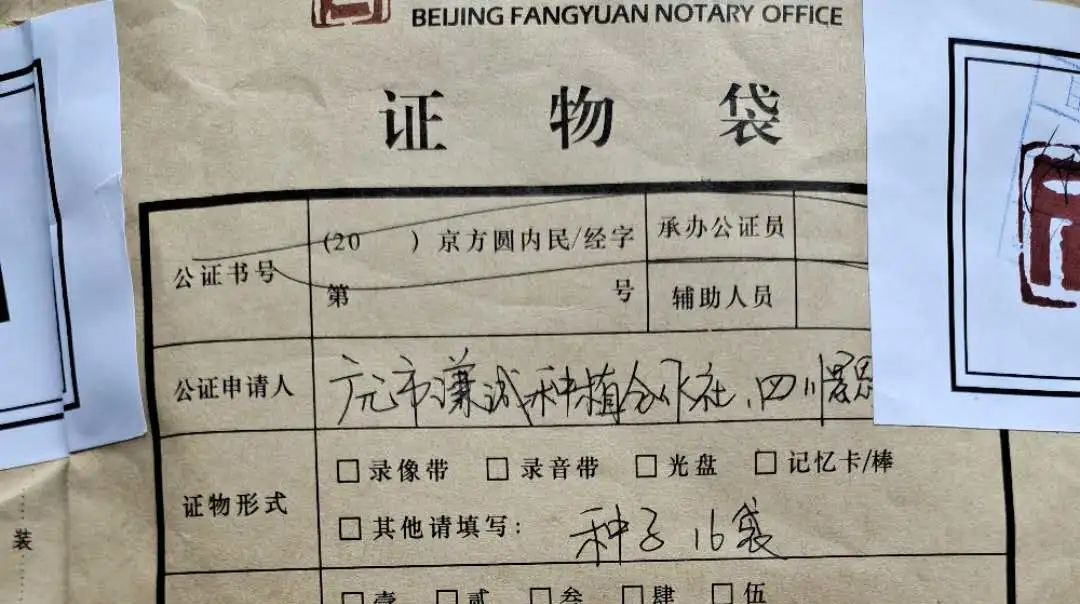 BEIJING FANGYUAN NOTARY OFFICE
证物袋
公证书号
(20 ) 京方圆内民/经字
第 号
承办公证员
辅助人员
公证申请人
广元市谦诚种植合作社、四川
证物形式
□ 录像带 □ 录音带 □ 光盘 □ 记忆卡/棒
□ 其他请填写: 种子 16袋
□ 壹 □ 贰 □ 叁 □ 肆 □ 伍
装